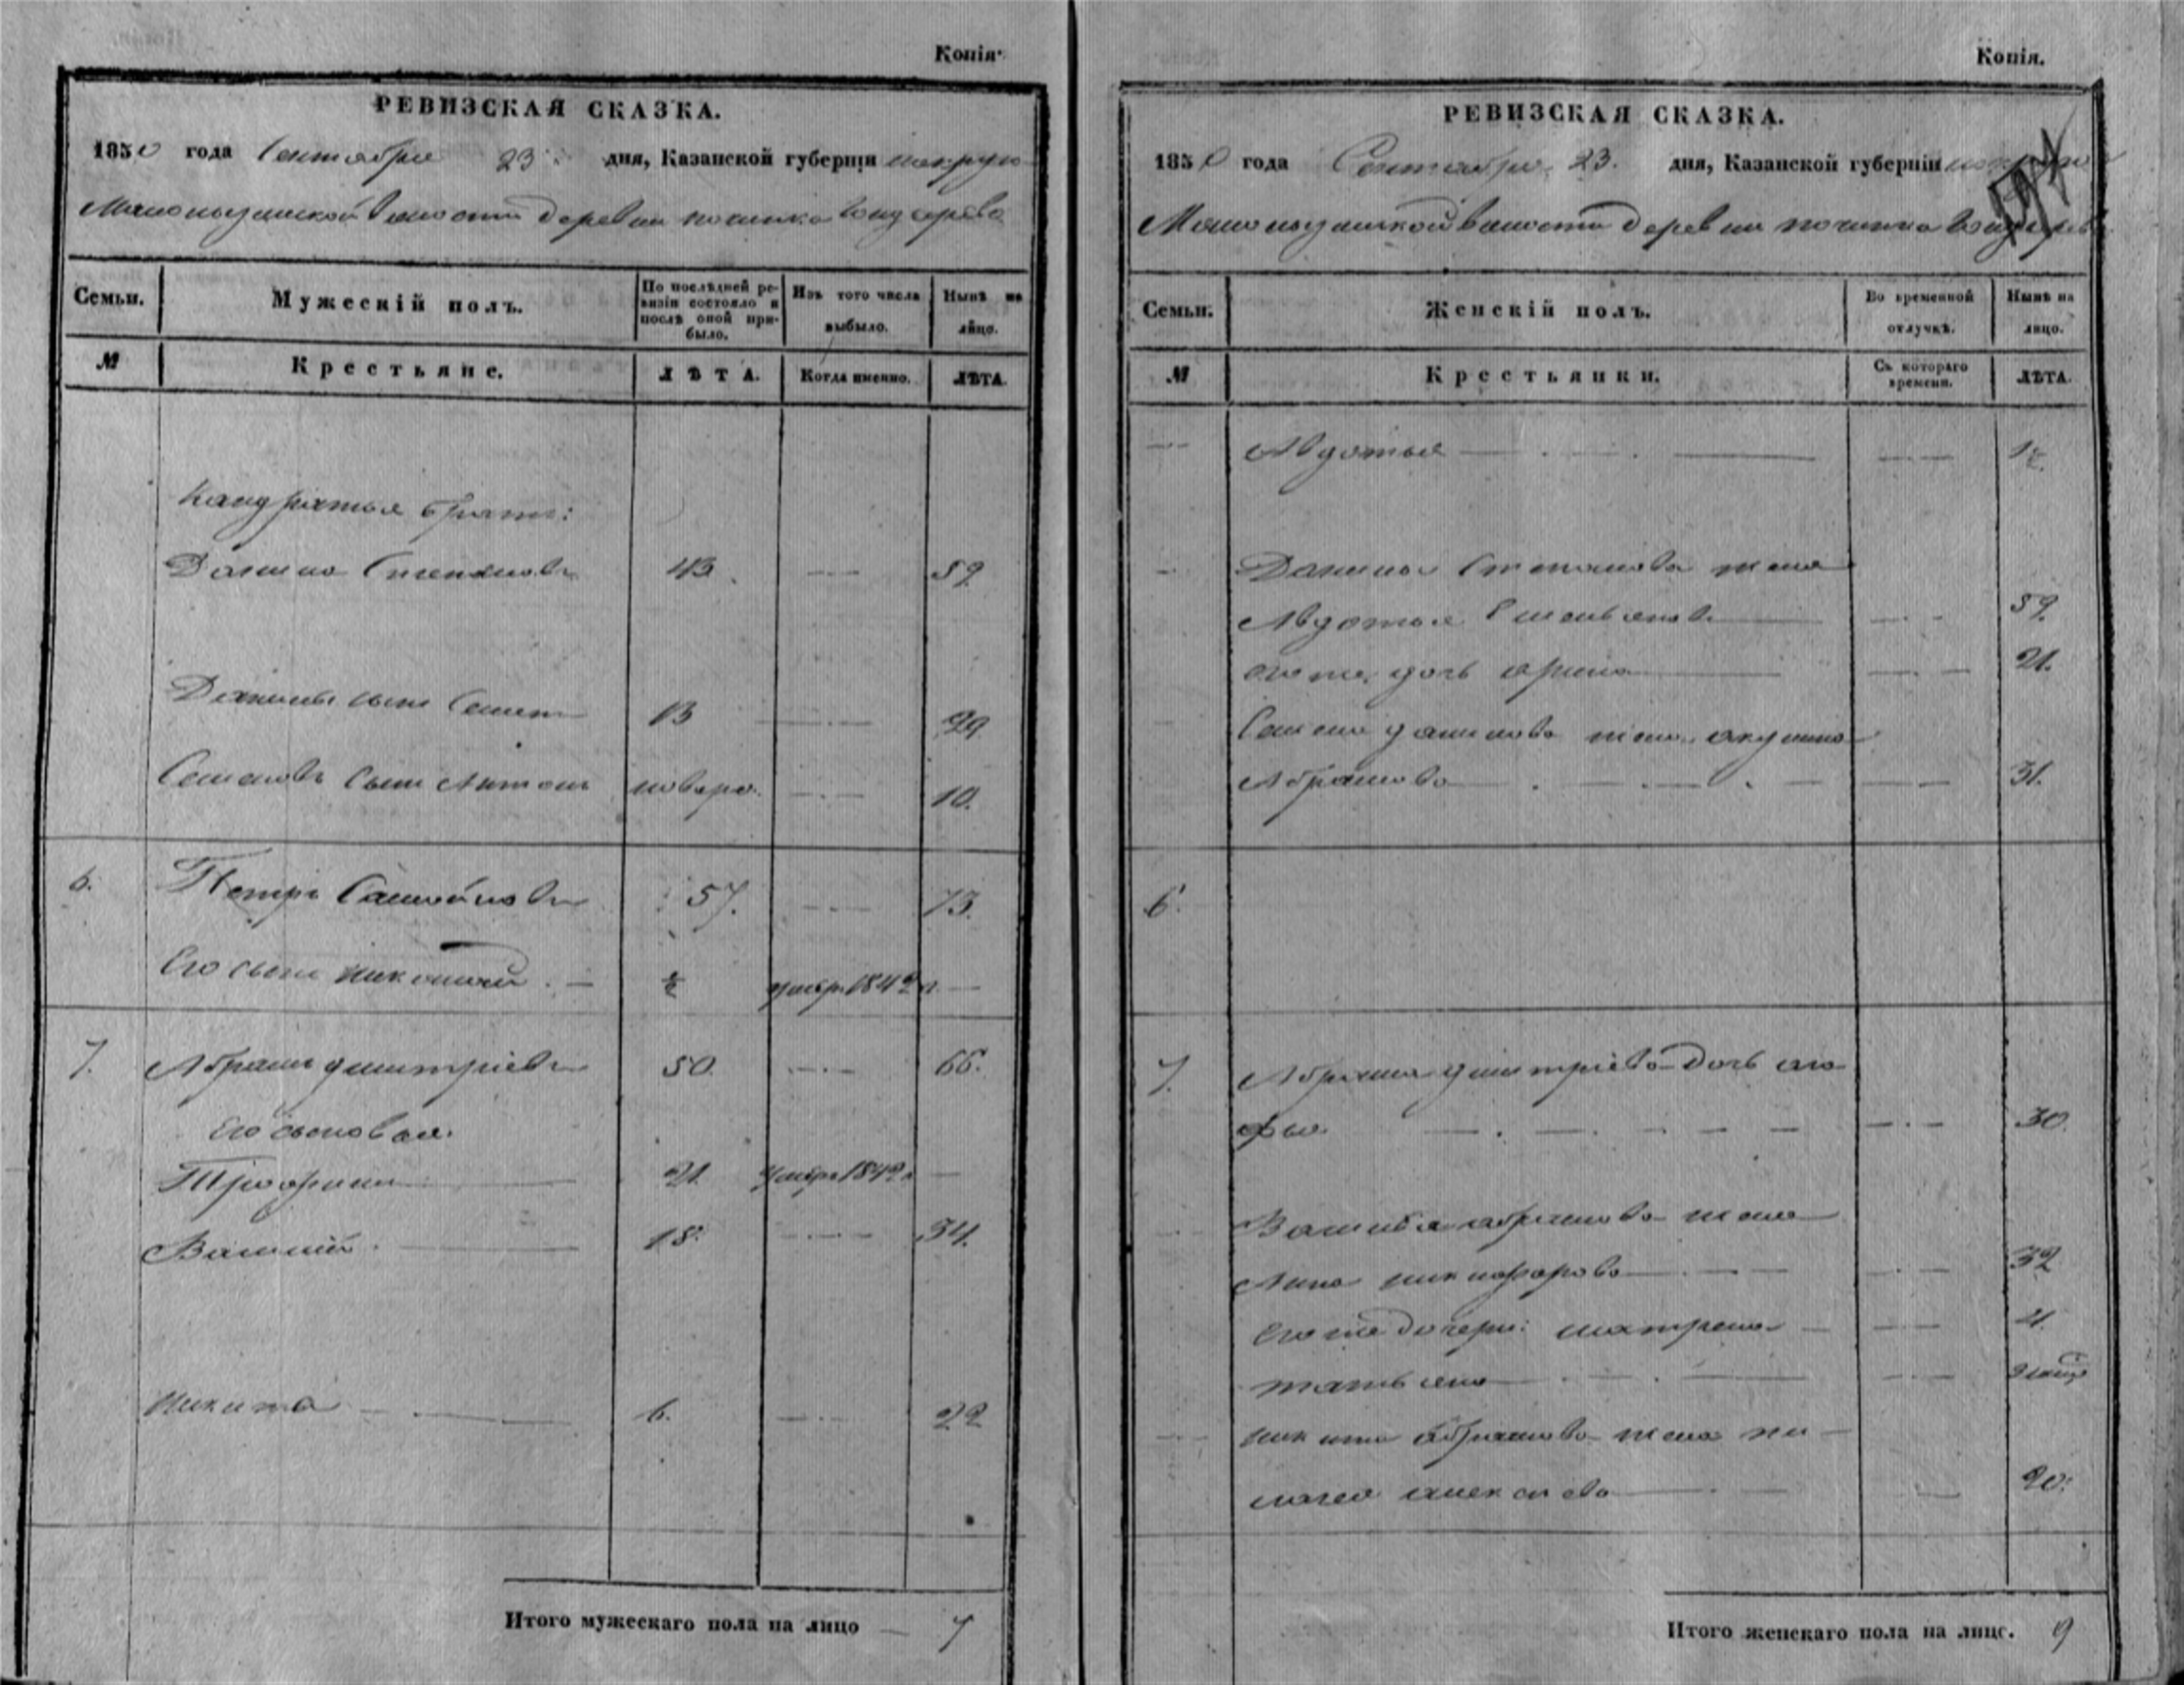 Копія.
РЕВИЗСКАЯ СКАЗКА.
1850 года Сентября 23 дня, Казанской губерніи
волости деревни починка
Семьи. Мужескій полъ. По послѣдней ревизіи состояло и послѣ оной прибыло. Изъ того числа выбыло. Нынѣ на лицо.
№ Крестьяне. ЛѢТА. Когда именно. ЛѢТА.
Кандратья братъ:
Данила Степановъ 43. 59
Данилы сынъ Семенъ 13 29
Семеновъ сынъ Антонъ новоро. 10.
6. Петръ 57. 73.
Его сынъ Николай ½ умеръ 1842 г.
7. Абрамъ дмитріевъ 50. 66.
Его сыновья:
Трофимъ 21. умеръ 1842 г.
Василій 18. 34.
Никита 6. 22
Итого мужескаго пола на лицо 7
Копія.
РЕВИЗСКАЯ СКАЗКА.
1850 года Сентября 23. дня, Казанской губерніи
волости деревни починка
Семьи. Женскій полъ. Во временной отлучкѣ. Нынѣ на лицо.
№ Крестьянки. Съ котораго времени. ЛѢТА.
Авдотья
Данилы Степанова жена
Авдотья 59.
его же дочь арина 21.
Семена данилова жена акулина
Абрамова 31.
6.
7. Абрама дмитріева дочь
30.
Василья абрамова жена
Анна никифорова 32
его же дочери: матрена 4.
татьяна
никиты абрамова жена пе
лагея алексеева 20.
Итого женскаго пола на лицо. 9